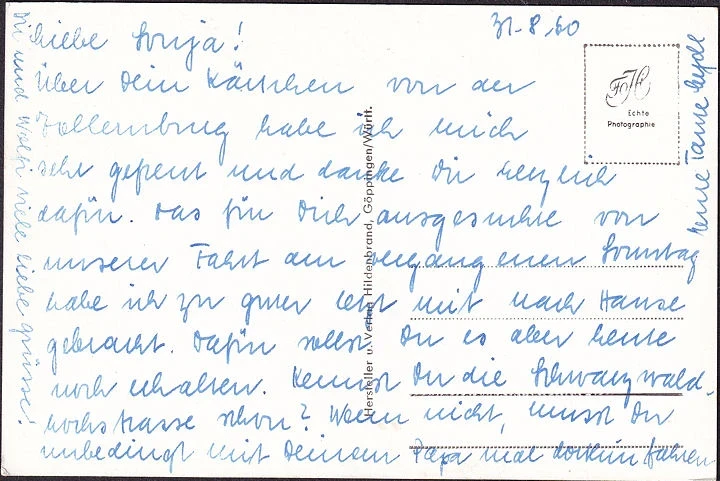 31.8.60
Liebe Sonja!
Über Dein Kärtchen von der
Zollernburg habe ich mich
sehr gefreut und danke Dir herzlich
dafür. Das für Dich ausgesuchte von
unserer Fahrt am vergangenen Sonntag
habe ich zu guter letzt mit nach Hause
gebracht. Dafür sollst Du es aber heute
noch erhalten. Kennst Du die Schwarzwald-
hochstrasse schon? Wenn nicht, musst Du
unbedingt mit Deinem Papa mal dorthin fahren
Dir und Wolfi viele liebe Grüsse!
Deine Tante
FH
Echte
Photographie
Hersteller u. Verlag Hildenbrand, Göppingen/Württ.